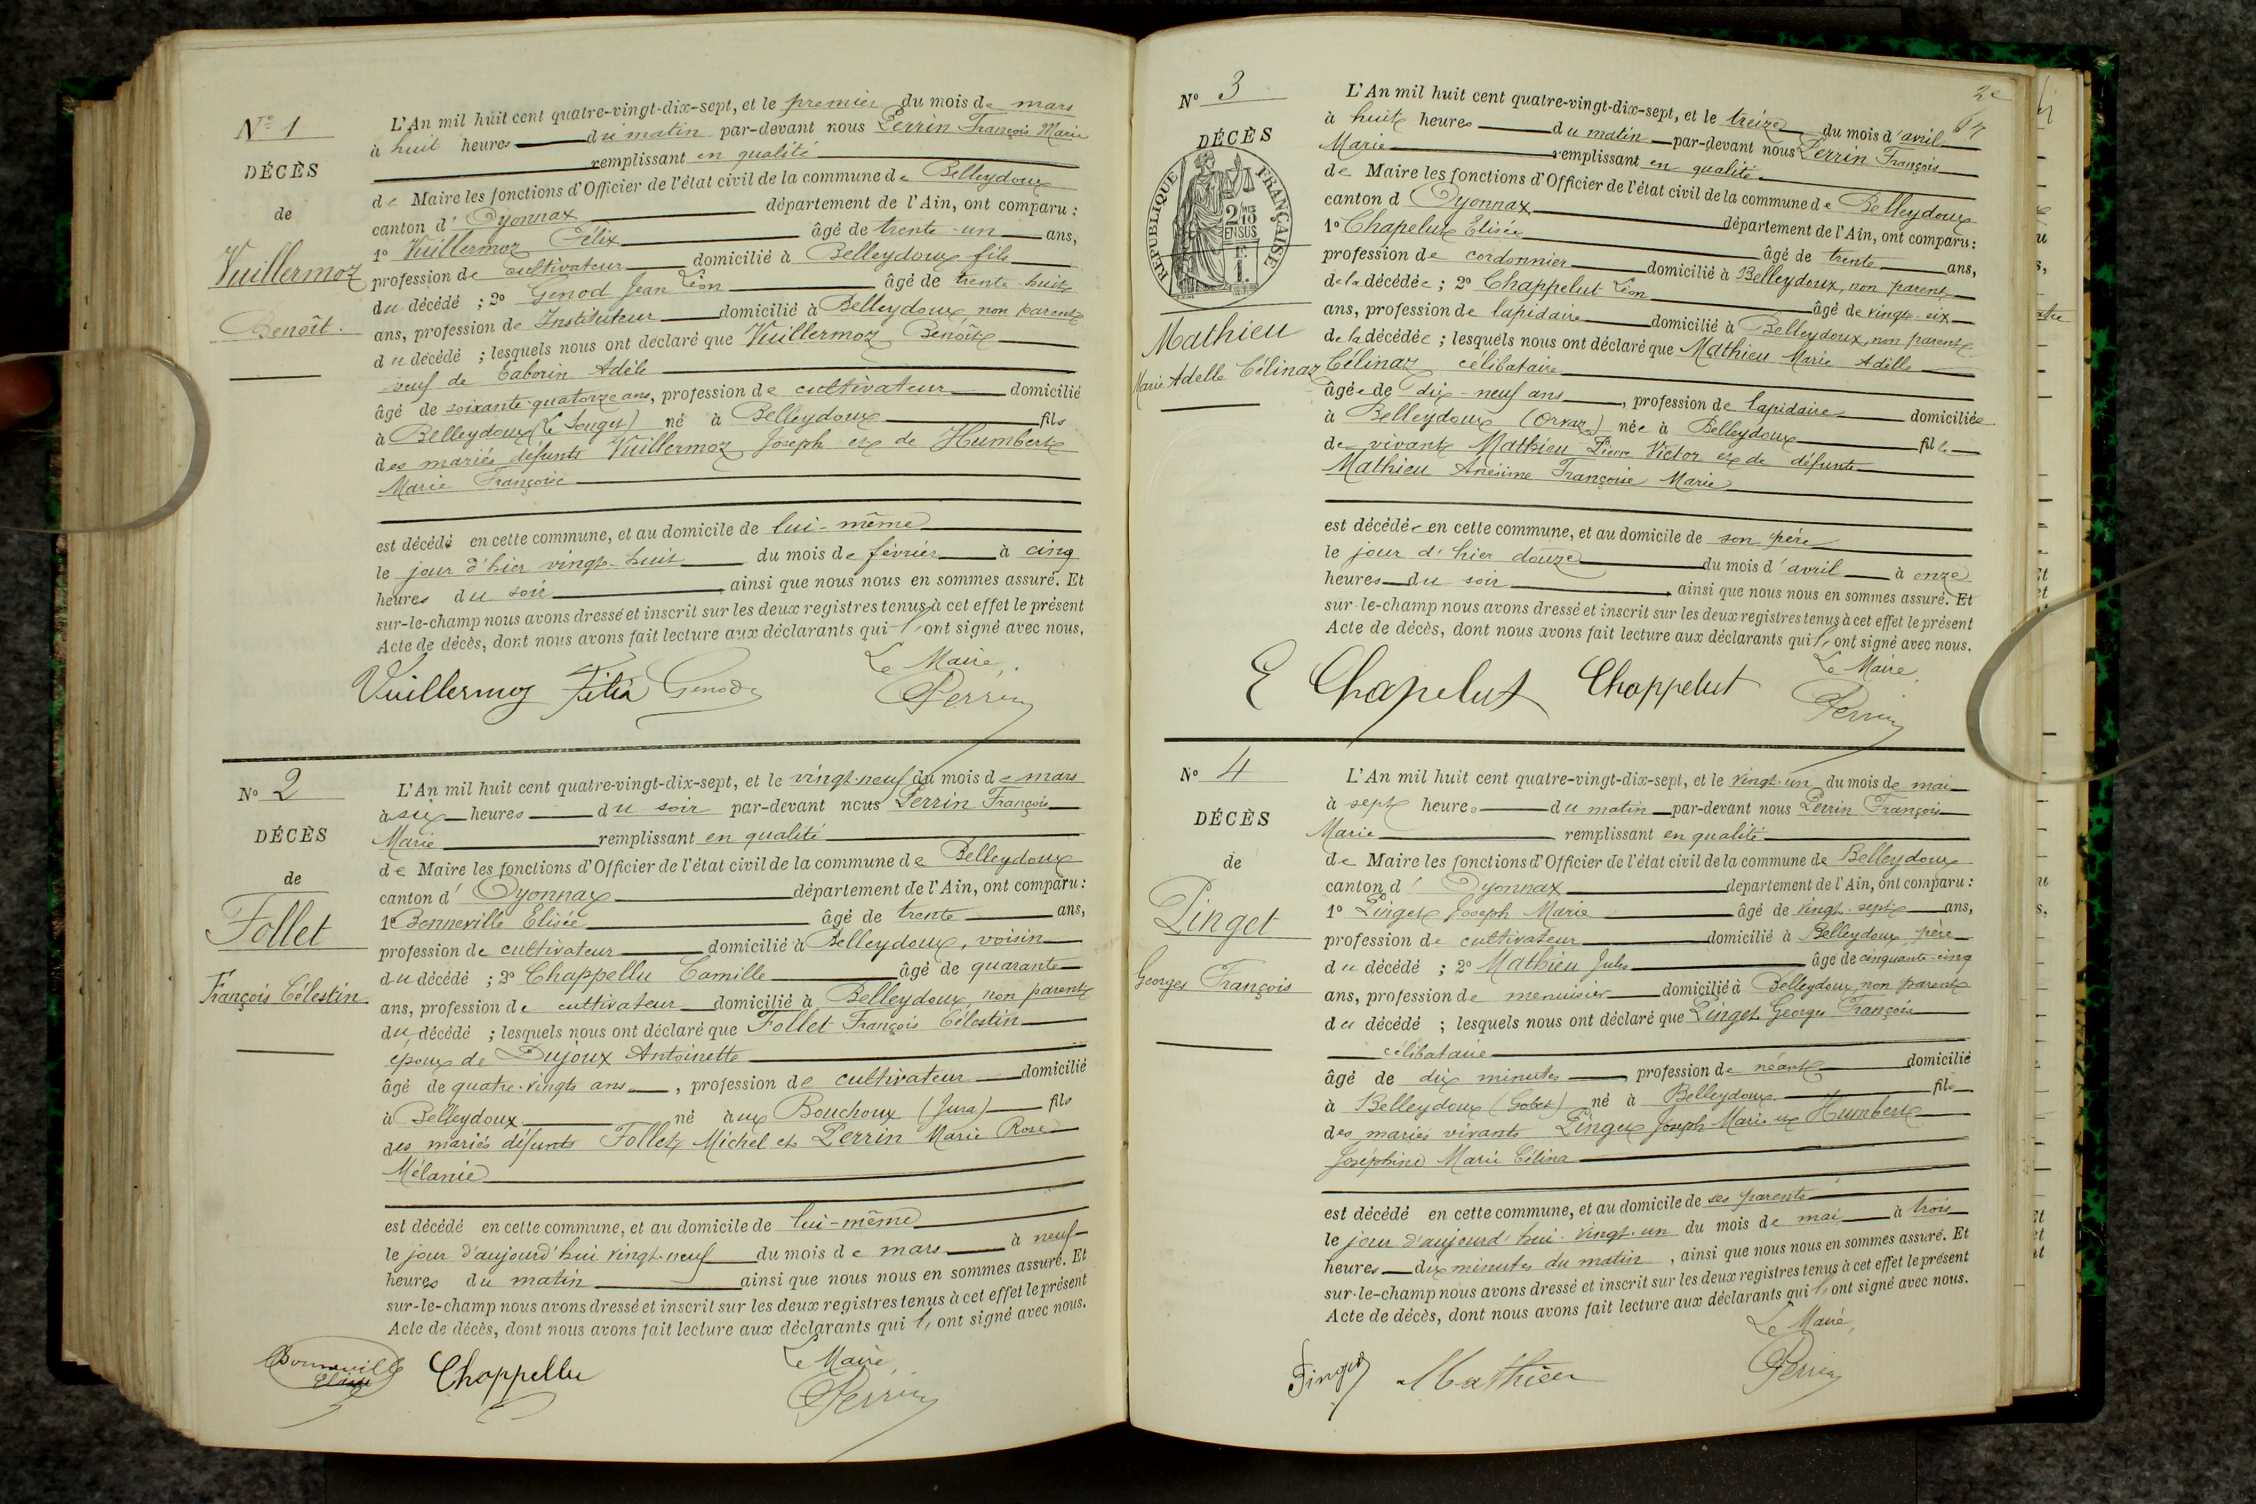 Nº 1
DÉCÈS
de
Vuillermoz
Benoît.
L'An mil huit cent quatre-vingt-dix-sept, et le premier du mois de mars
à huit heures du matin par-devant nous Perrin François Marie
remplissant en qualité
de Maire les fonctions d'Officier de l'état civil de la commune de Belleydoux
canton d' Oyonnax département de l'Ain, ont comparu :
1º Vuillermoz Félix âgé de trente-un ans,
profession de cultivateur domicilié à Belleydoux fils
du décédé ; 2º Genod Jean Léon âgé de trente-huit
ans, profession de Instituteur domicilié à Belleydoux, non parent
du décédé ; lesquels nous ont déclaré que Vuillermoz Benoît
veuf de Taborin Adèle
âgé de soixante-quatorze ans, profession de cultivateur domicilié
à Belleydoux (Le Souget) né à Belleydoux fils
des mariés défunts Vuillermoz Joseph et de Humbert
Marie Françoise
est décédé en cette commune, et au domicile de lui-même
le jour d'hier vingt-huit du mois de février à cinq
heures du soir ainsi que nous nous en sommes assuré. Et
sur-le-champ nous avons dressé et inscrit sur les deux registres tenus à cet effet le présent
Acte de décès, dont nous avons fait lecture aux déclarants qui l' ont signé avec nous.
Le Maire,
Vuillermoz Félix Genod Perrin
Nº 2
DÉCÈS
de
Follet
François Célestin
L'An mil huit cent quatre-vingt-dix-sept, et le vingt-neuf du mois de mars
à six heures du soir par-devant nous Perrin François
Marie remplissant en qualité
de Maire les fonctions d'Officier de l'état civil de la commune de Belleydoux
canton d' Oyonnax département de l'Ain, ont comparu :
1º Bonneville Elisée âgé de trente ans,
profession de cultivateur domicilié à Belleydoux, voisin
du décédé ; 2º Chappellu Camille âgé de quarante
ans, profession de cultivateur domicilié à Belleydoux, non parent
du décédé ; lesquels nous ont déclaré que Follet François Célestin
époux de Dujoux Antoinette
âgé de quatre-vingts ans, profession de cultivateur domicilié
à Belleydoux né aux Bouchoux (Jura) fils
des mariés défunts Follet Michel et Perrin Marie Rose
Mélanie
est décédé en cette commune, et au domicile de lui-même
le jour d'aujourd'hui vingt-neuf du mois de mars à neuf
heures du matin ainsi que nous nous en sommes assuré. Et
sur-le-champ nous avons dressé et inscrit sur les deux registres tenus à cet effet le présent
Acte de décès, dont nous avons fait lecture aux déclarants qui l' ont signé avec nous.
Le Maire,
Bonneville Elisée Chappellu Perrin
Nº 3
DÉCÈS
RÉPUBLIQUE FRANÇAISE
Mathieu
Marie Adelle Célinaz
L'An mil huit cent quatre-vingt-dix-sept, et le treize du mois d'avril
à huit heures du matin par-devant nous Perrin François
Marie remplissant en qualité
de Maire les fonctions d'Officier de l'état civil de la commune de Belleydoux
canton d Oyonnax département de l'Ain, ont comparu :
1º Chapelut Elisée âgé de trente ans,
profession de cordonnier domicilié à Belleydoux, non parent
de la décédée ; 2º Chappelut Léon âgé de vingt-six
ans, profession de lapidaire domicilié à Belleydoux, non parent
de la décédée ; lesquels nous ont déclaré que Mathieu Marie Adelle
Célinaz célibataire
âgée de dix-neuf ans, profession de lapidaire domiciliée
à Belleydoux (Orvaz) née à Belleydoux fille
de vivant Mathieu Pierre Victor et de défunte
Mathieu Anésime Françoise Marie
est décédée en cette commune, et au domicile de son père
le jour d'hier douze du mois d'avril à onze
heures du soir ainsi que nous nous en sommes assuré. Et
sur-le-champ nous avons dressé et inscrit sur les deux registres tenus à cet effet le présent
Acte de décès, dont nous avons fait lecture aux déclarants qui l' ont signé avec nous.
Le Maire,
E Chapelut Chappelut Perrin
Nº 4
DÉCÈS
de
Pinget
Georges François
L'An mil huit cent quatre-vingt-dix-sept, et le vingt-un du mois de mai
à sept heures du matin par-devant nous Perrin François
Marie remplissant en qualité
de Maire les fonctions d'Officier de l'état civil de la commune de Belleydoux
canton d' Oyonnax département de l'Ain, ont comparu :
1º Pinget Joseph Marie âgé de vingt-sept ans,
profession de cultivateur domicilié à Belleydoux, père
du décédé ; 2º Mathieu Jules âgé de cinquante-cinq
ans, profession de menuisier domicilié à Belleydoux, non parent
du décédé ; lesquels nous ont déclaré que Pinget Georges François
célibataire
âgé de dix minutes, profession de néant domicilié
à Belleydoux (Gobet) né à Belleydoux fils
des mariés vivants Pinget Joseph-Marie et Humbert
Joséphine Marie Célina
est décédé en cette commune, et au domicile de ses parents
le jour d'aujourd'hui vingt-un du mois de mai à trois
heures dix minutes du matin, ainsi que nous nous en sommes assuré. Et
sur-le-champ nous avons dressé et inscrit sur les deux registres tenus à cet effet le présent
Acte de décès, dont nous avons fait lecture aux déclarants qui l' ont signé avec nous.
Le Maire,
Pinget Mathieu Perrin